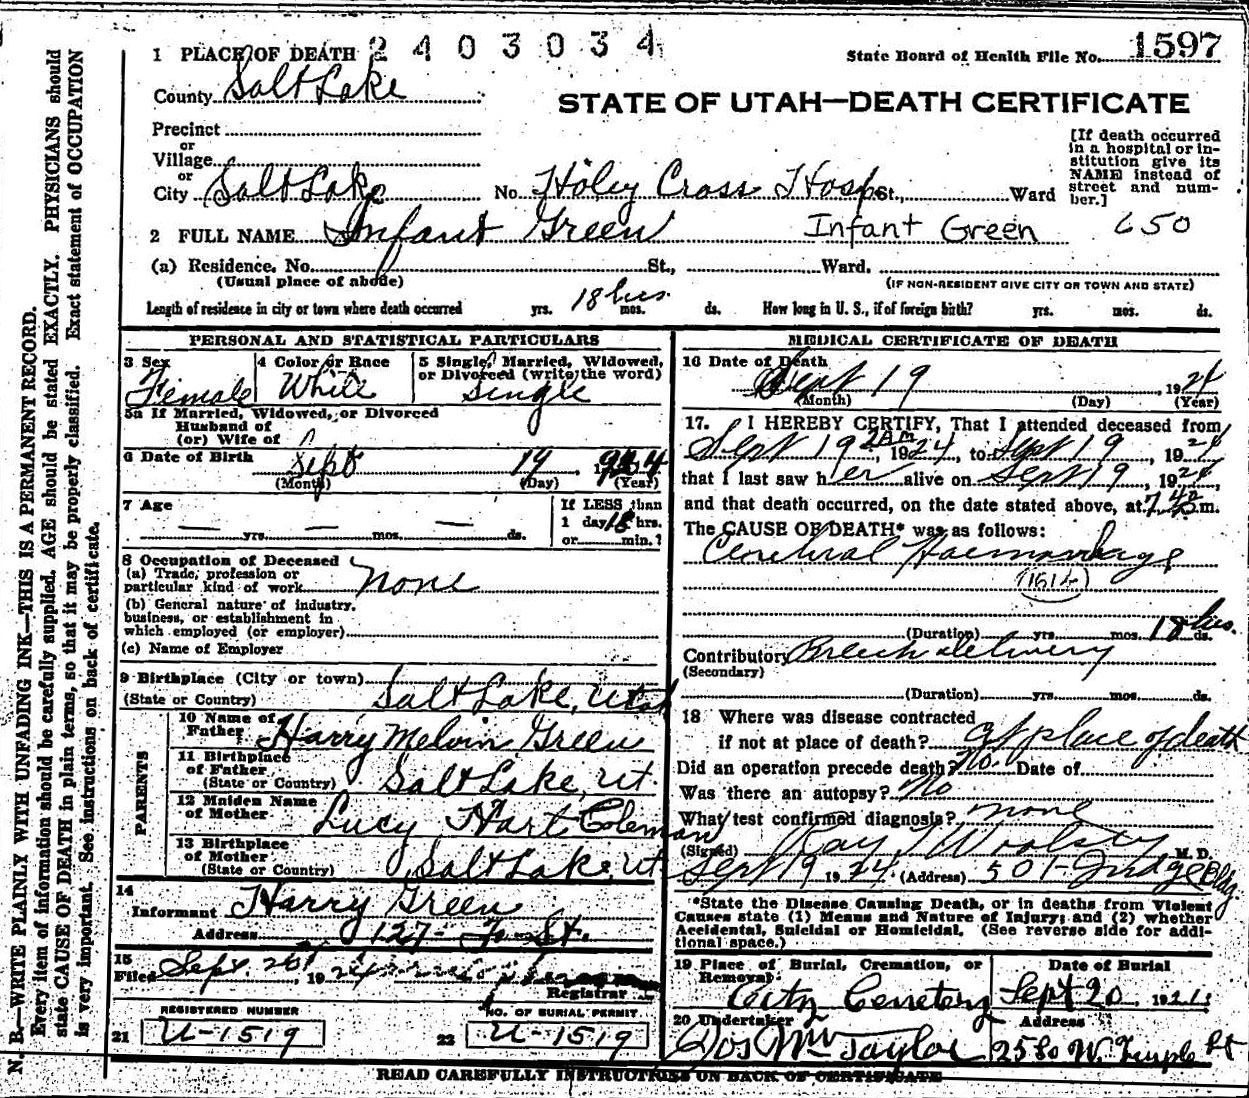 N. B.—WRITE PLAINLY WITH UNFADING INK—THIS IS A PERMANENT RECORD.
Every item of information should be carefully supplied. AGE should be stated EXACTLY. PHYSICIANS should
state CAUSE OF DEATH in plain terms, so that it may be properly classified. Exact statement of OCCUPATION
is very important. See instructions on back of certificate.
1 PLACE OF DEATH 2403034
State Board of Health File No. 1597
County Salt Lake
STATE OF UTAH—DEATH CERTIFICATE
Precinct
or
Village
or
City Salt Lake No. Holey Cross Hosp St., Ward
[If death occurred
in a hospital or in-
stitution give its
NAME instead of
street and num-
ber.]
2 FULL NAME Infant Green Infant Green 650
(a) Residence. No. St., Ward.
(Usual place of abode) (IF NON-RESIDENT GIVE CITY OR TOWN AND STATE)
Length of residence in city or town where death occurred yrs. 18 hrs. mos. ds. How long in U. S., if of foreign birth? yrs. mos. ds.
PERSONAL AND STATISTICAL PARTICULARS
3 Sex 4 Color or Race 5 Single, Married, Widowed,
or Divorced (write the word)
Female White Single
5a If Married, Widowed, or Divorced
Husband of
(or) Wife of
6 Date of Birth Sept 19, 1924
(Month) (Day) (Year)
7 Age If LESS than
1 day 18 hrs.
— yrs. — mos. — ds. or min.?
8 Occupation of Deceased
(a) Trade, profession or
particular kind of work none
(b) General nature of industry,
business, or establishment in
which employed (or employer)
(c) Name of Employer
9 Birthplace (City or town)
(State or Country) Salt Lake, Utah
PARENTS
10 Name of
Father Harry Melvin Green
11 Birthplace
of Father
(State or Country) Salt Lake, Ut.
12 Maiden Name
of Mother Lucy Hart Coleman
13 Birthplace
of Mother
(State or Country) Salt Lake, Ut
14
Informant Harry Green
Address 127- F- St.
15
Filed Sept. 20, 1924
Registrar
REGISTERED NUMBER NO. OF BURIAL PERMIT
21 U-1519 22 U-1519
MEDICAL CERTIFICATE OF DEATH
16 Date of Death
Sept 19 1924
(Month) (Day) (Year)
17. I HEREBY CERTIFY, That I attended deceased from
Sept 19 2AM, 1924, to Sept 19, 1924,
that I last saw her alive on Sept 19, 1924,
and that death occurred, on the date stated above, at 7 m.
The CAUSE OF DEATH* was as follows:
Cerebral Haemorrhage
(1614)
(Duration) yrs. mos. 18 hrs. ds.
Contributory Breech delivery
(Secondary)
(Duration) yrs. mos. ds.
18 Where was disease contracted
if not at place of death? at place of death
Did an operation precede death? No. Date of
Was there an autopsy? No
What test confirmed diagnosis? none
(Signed) Ray T Woolsey M. D.
Sept 19 1924. (Address) 501-Judge Bldg.
*State the Disease Causing Death, or in deaths from Violent
Causes state (1) Means and Nature of Injury; and (2) whether
Accidental, Suicidal or Homicidal. (See reverse side for addi-
tional space.)
19 Place of Burial, Cremation, or Date of Burial
Removal
City Cemetery Sept 20, 192
20 Undertaker Address
Jos Wm Taylor 2580 W. Temple St
READ CAREFULLY INSTRUCTIONS ON BACK OF CERTIFICATE